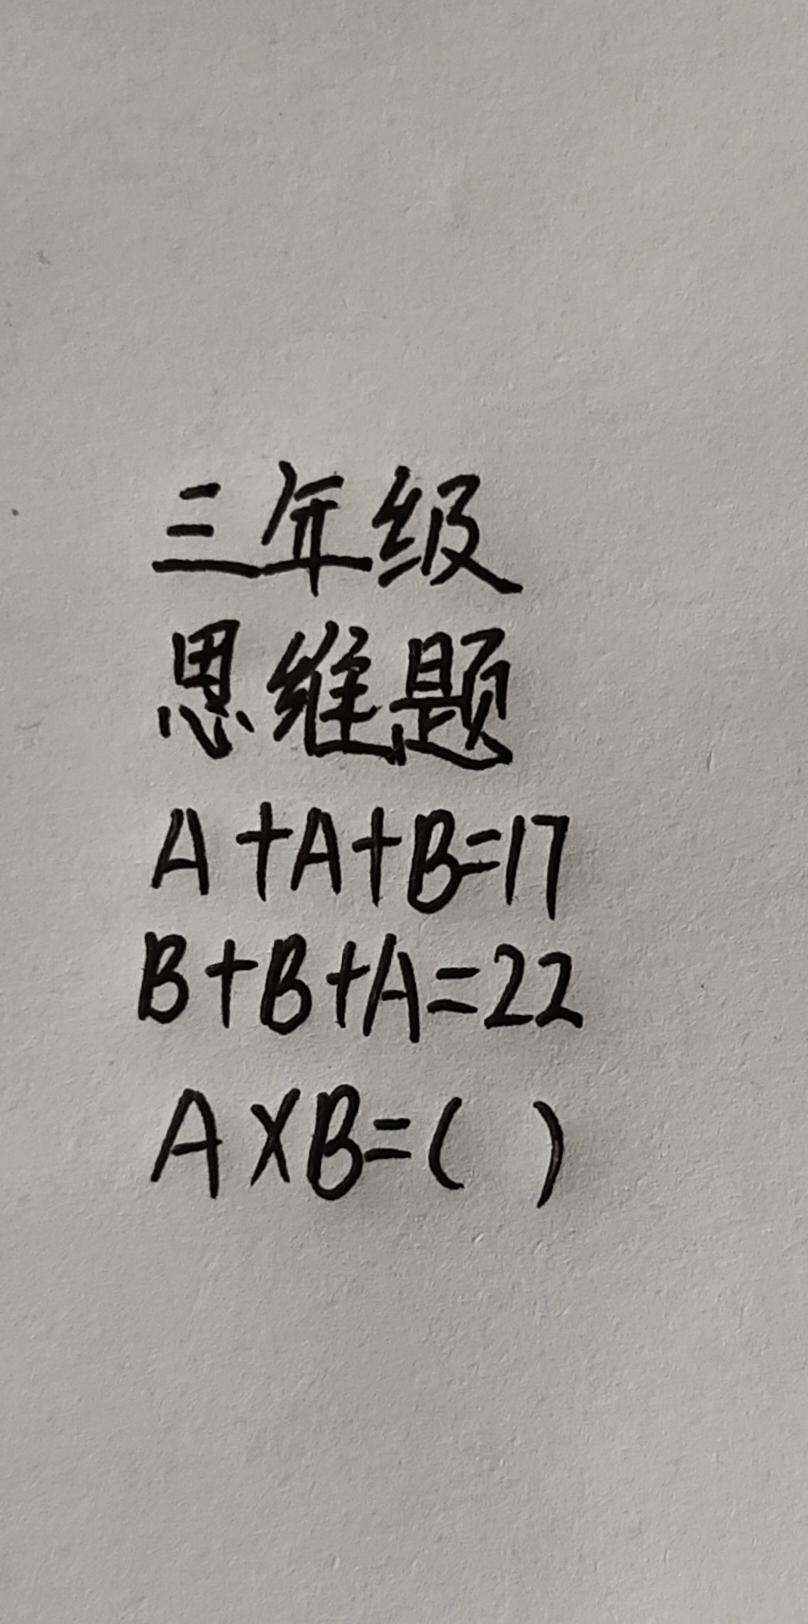 三年级
思维题
A+A+B=17
B+B+A=22
A×B=( )